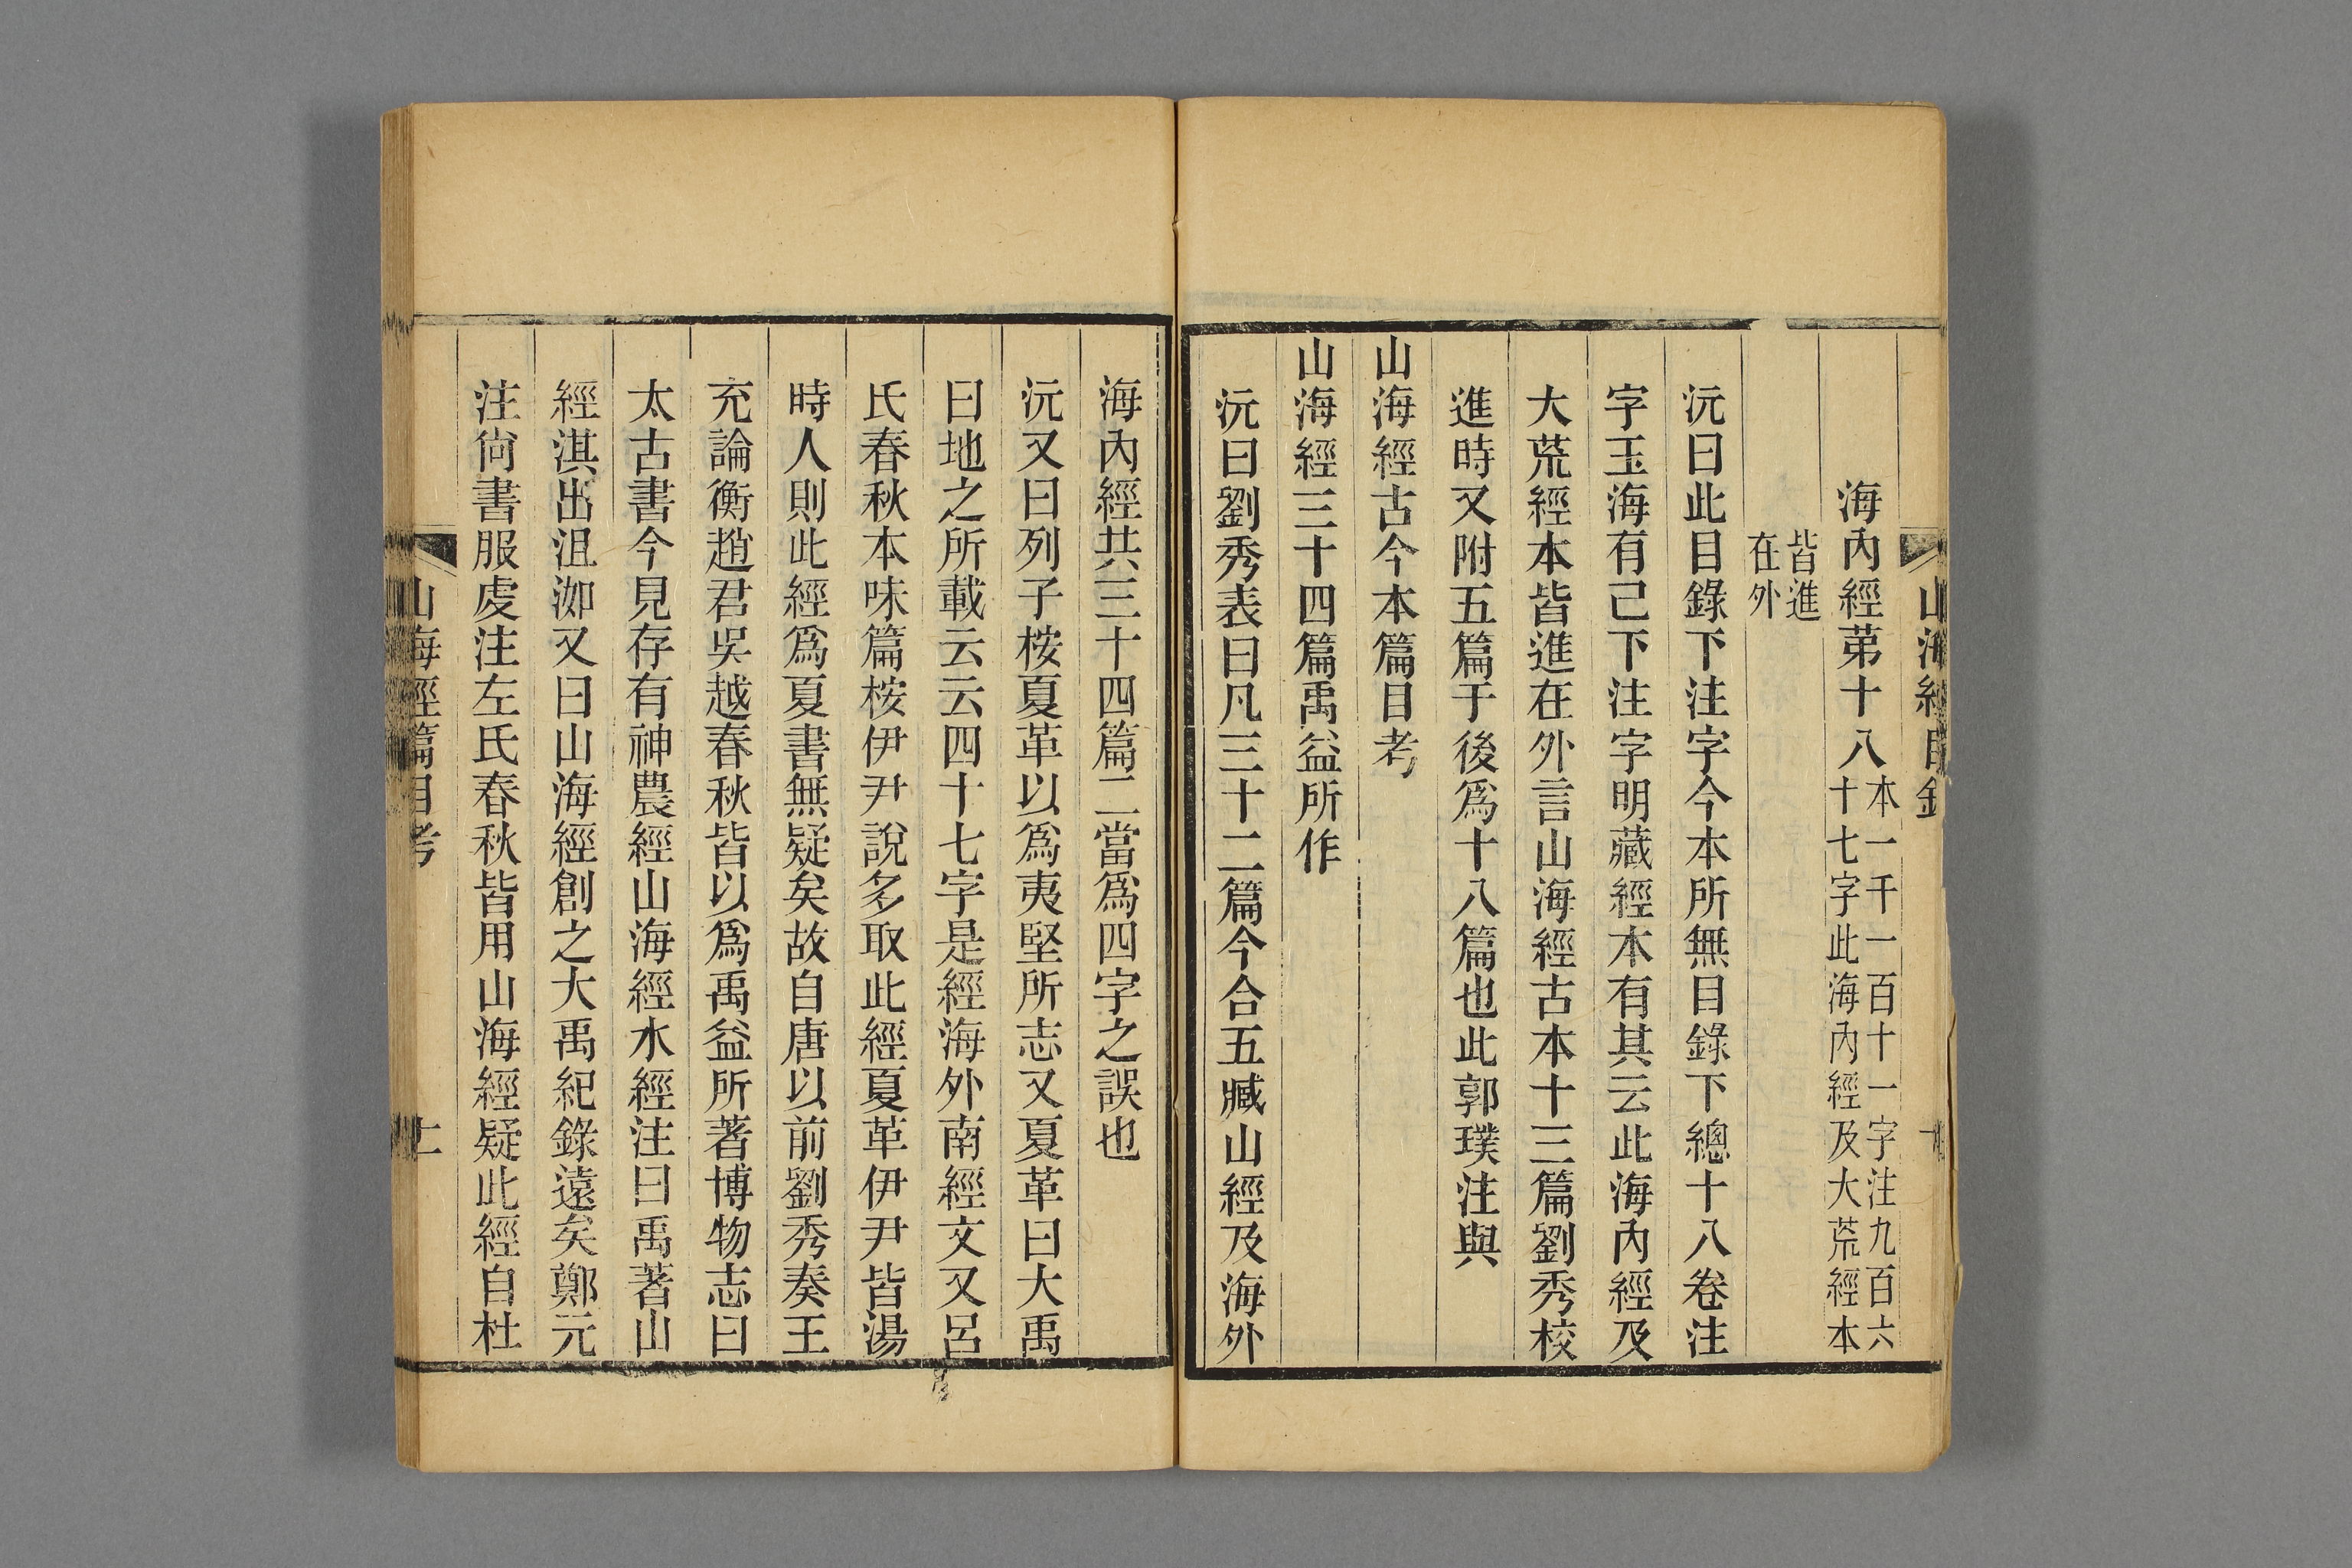 山海經目錄
海內經第十八本一千一百十一字注九百六
十七字此海內經及大荒經本
皆進
在外
沅曰此目錄下注字今本所無目錄下總十八卷注
字玉海有己下注字明藏經本有其云此海內經及
大荒經本皆進在外言山海經古本十三篇劉秀校
進時又附五篇于後爲十八篇也此郭璞注與
山海經古今本篇目考
山海經三十四篇禹益所作
沅曰劉秀表曰凡三十二篇今合五臧山經及海外
海內經共三十四篇二當爲四字之誤也
沅又曰列子桉夏革以爲夷堅所志又夏革曰大禹
曰地之所載云云四十七字是經海外南經文又呂
氏春秋本味篇桉伊尹說多取此經夏革伊尹皆湯
時人則此經爲夏書無疑矣故自唐以前劉秀奏王
充論衡趙君吳越春秋皆以爲禹益所著博物志曰
太古書今見存有神農經山海經水經注曰禹著山
經淇出沮洳又曰山海經創之大禹紀錄遠矣鄭元
注尙書服虔注左氏春秋皆用山海經疑此經自杜
山海經篇目考